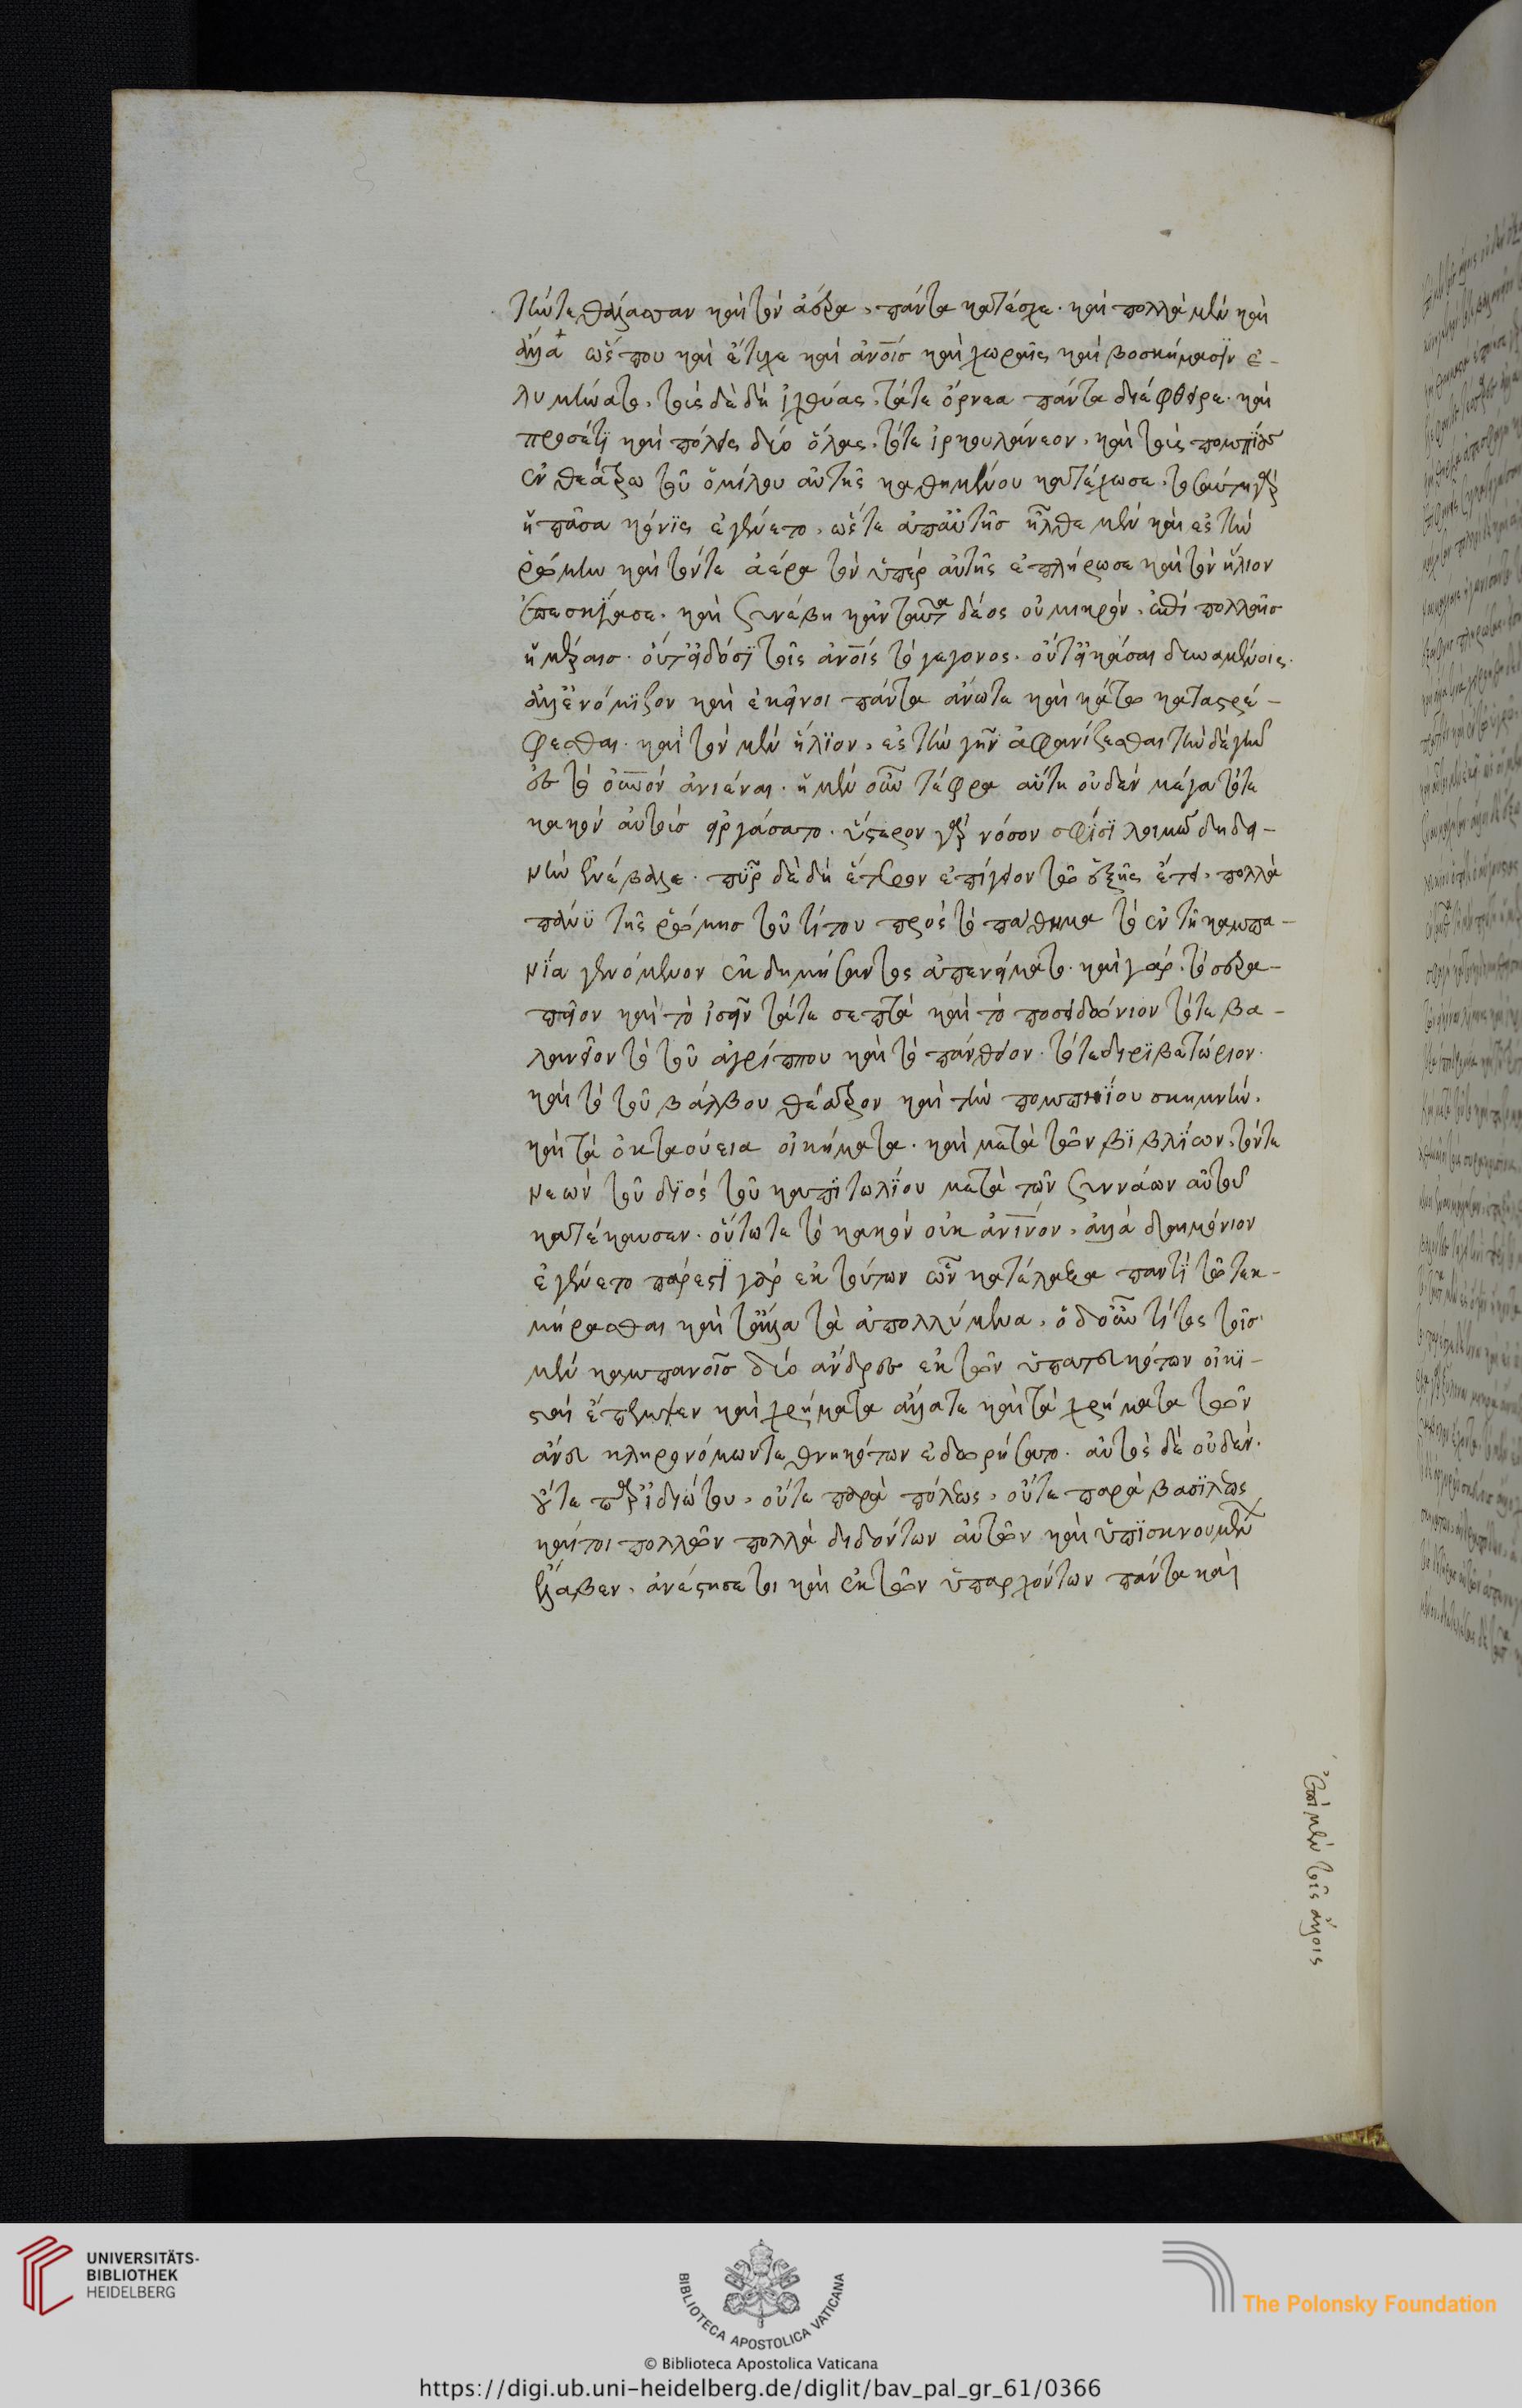 τήν τε θάλασσαν καὶ τὸν ἀέρα, πάντα κατέσχε. καὶ πολλὰ μὲν καὶ
ἄλλα ὥς που καὶ ἔτυχε καὶ ἀνοῖς καὶ χώραις καὶ βοσκήμασϊν ἐ-
λυμήνατο, τοὺς δὲ δὴ ἰχθύας, τάτε ὄρνεα πάντα διέφθειρε. καὶ
προσέτϊ καὶ πόλεις δύο ὅλας, τότε ἑρκουλάνεον, καὶ τοὺς πομπηΐους
ἐν θεάτρω τοῦ ὁμίλου αὐτῆς καθημένου κατέχωσε. τοσαύτη γὰρ
ἡ πᾶσα κόνϊς ἐγένετο, ὥστε ἀπαὐτῆς ἦλθε μὲν καὶ ἐς τὴν
ῥώμην καὶ τόντε ἀέρα τὸν ὑπὲρ αὐτῆς ἐπλήρωσε καὶ τὸν ἥλιον
ἐπεσκΐασε. καὶ συνέβη κἀνταῦθα δέος οὐ μικρόν, ἐπὶ πολλαῖς
ἡμέραις. οὔτ εἰδόσϊ τοῖς ἀνοῖς τὸ γεγονος. οὔτ εἰκάσαι δυναμένοις.
ἀλλ ἐνόμϊζον καὶ ἐκεῖνοι πάντα ἄνωτε καὶ κάτω καταστρέ-
φεσθαι. καὶ τὸν μὲν ἥλϊον, ἐς τὴν γῆν ἀφανίζεσθαι τὴν δὲ γῆν
ἐς τὸ οὐνὸν ἀνιέναι. ἡ μὲν οὖν τέφρα αὕτη οὐδὲν μέγα τότε
κακὸν αὐτοὺς εἰργάσατο. ὕστερον γὰρ νόσον σφίσϊ λοιμώδη δει-
νὴν ἐνέβαλε. πῦρ δὲ δὴ ἕτερον ἐπίγειον τῶ ἑξῆς ἔτει. πολλὰ
πάνϋ τῆς ῥώμης τοῦ τίτου πρὸς τὸ πάθημα τὸ ἐν τῆ καμπα-
νΐα γενόμενον ἐκδημήσαντος ἀπενείματο. καὶ γάρ. τὸ σερα-
πεῖον καὶ τὸ ἰσεῖν τάτε σεπτὰ καὶ τὸ ποσειδώνιον τότε βα-
λανεῖον τὸ τοῦ ἀγρίππου καὶ τὸ πάνθειον. τότε διριβιτώριον.
καὶ τὸ τοῦ βάλβου θέατρον καὶ τὴν πομπηΐου σκηνήν.
καὶ τὰ ὀκταούεια οἰκήματα. καὶ μετὰ τῶν βϊβλΐων, τόντε
νεὼν τοῦ δϊὸς τοῦ καπϊτωλΐου μετὰ τῶν συννάων αὐτοῦ
κατέκαυσεν. οὕτω τε τὸ κακὸν οὐκ ἀνινον, ἀλλὰ δαιμόνιον
ἐγένετο πάρεστϊ γὰρ ἐκ τούτων ὧν κατέλεξα παντὶ τῶ τεκ-
μήρασθαι καὶ τἄλλα τὰ ἀπολλύμενα. ὁ δοὖν τίτος τοῖς
μὲν καμπανοῖς δύο ἄνδρας ἐκ τῶν ὑπατευκότων οἰκϊ-
στὰς ἔπεμψεν καὶ χρήματα ἄλλατε καὶ τὰ χρήματα τῶν
ἄνευ κληρονόμωντε θνηκότων ἐδωρήσατο. αὐτὸς δὲ οὐδὲν.
οὔτε παρ ἰδϊώτου. οὔτε παρὰ πόλεως. οὔτε παρὰ βασϊλέως
καίτοι πολλῶν πολλὰ διδόντων αὐτῶν καὶ ὑπϊσκνουμένων
ἔλαβεν. ἀνέστησε τοι καὶ ἐκ τῶν ὑπαρχόντων πάντα καὶ
ἐπὶ μὲν τοῖς ἄλλοις
UNIVERSITÄTS-
BIBLIOTHEK
HEIDELBERG
BIBLIOTECA APOSTOLICA VATICANA
The Polonsky Foundation
© Biblioteca Apostolica Vaticana
https://digi.ub.uni-heidelberg.de/diglit/bav_pal_gr_61/0366